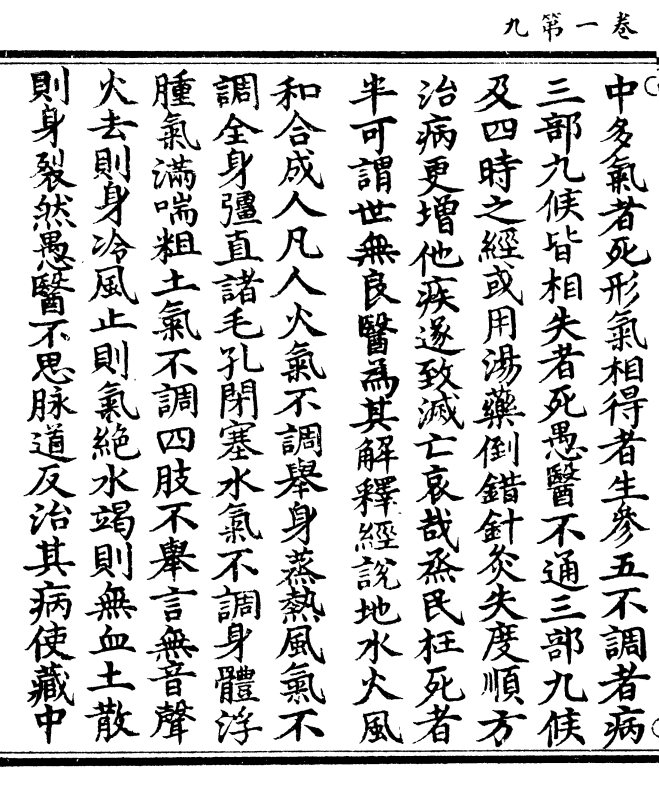 卷一第九
中多氣者死形氣相得者生參五不調者病
三部九候皆相失者死愚醫不通三部九候
及四時之經或用湯藥倒錯針灸失度順方
治病更增他疾遂致滅亡哀哉烝民枉死者
半可謂世無良醫為其解釋經說地水火風
和合成人凡人火氣不調舉身蒸熱風氣不
調全身彊直諸毛孔閉塞水氣不調身體浮
腫氣滿喘粗土氣不調四肢不舉言無音聲
火去則身冷風止則氣絕水竭則無血土散
則身裂然愚醫不思脉道反治其病使藏中